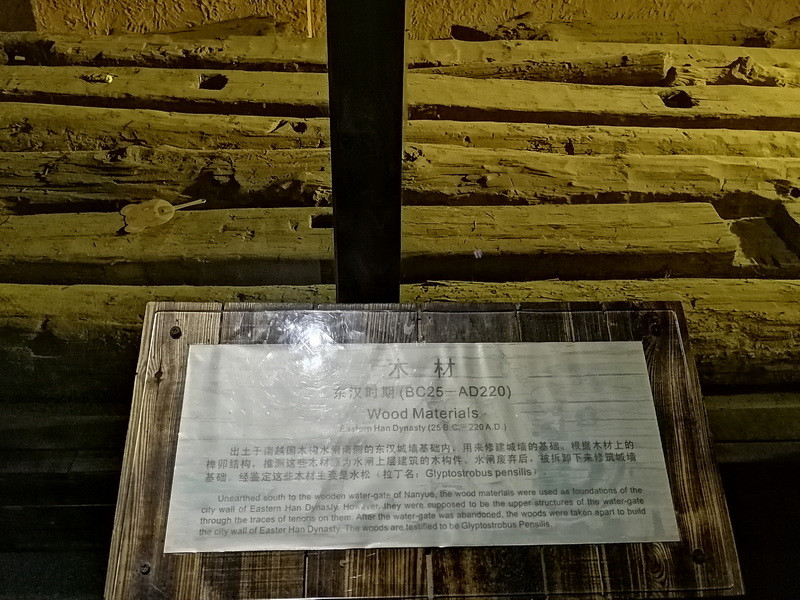 木 材
东汉时期(BC25－AD220)
Wood Materials
Eastern Han Dynasty (25 B.C.－220 A.D.)
出土于南越国木构水闸南侧的东汉城墙基础内，用来修建城墙的基础。根据木材上的
榫卯结构，推测这些木材原为水闸上层建筑的木构件。水闸废弃后，被拆卸下来修筑城墙
基础。经鉴定这些木材主要是水松（拉丁名：Glyptostrobus pensilis）.
Unearthed south to the wooden water-gate of Nanyue, the wood materials were used as foundations of the
city wall of Eastern Han Dynasty. However, they were supposed to be the upper structures of the water-gate
through the traces of tenons on them. After the water-gate was abandoned, the woods were taken apart to build
the city wall of Easter Han Dynasty. The woods are testified to be Glyptostrobus Pensilis.